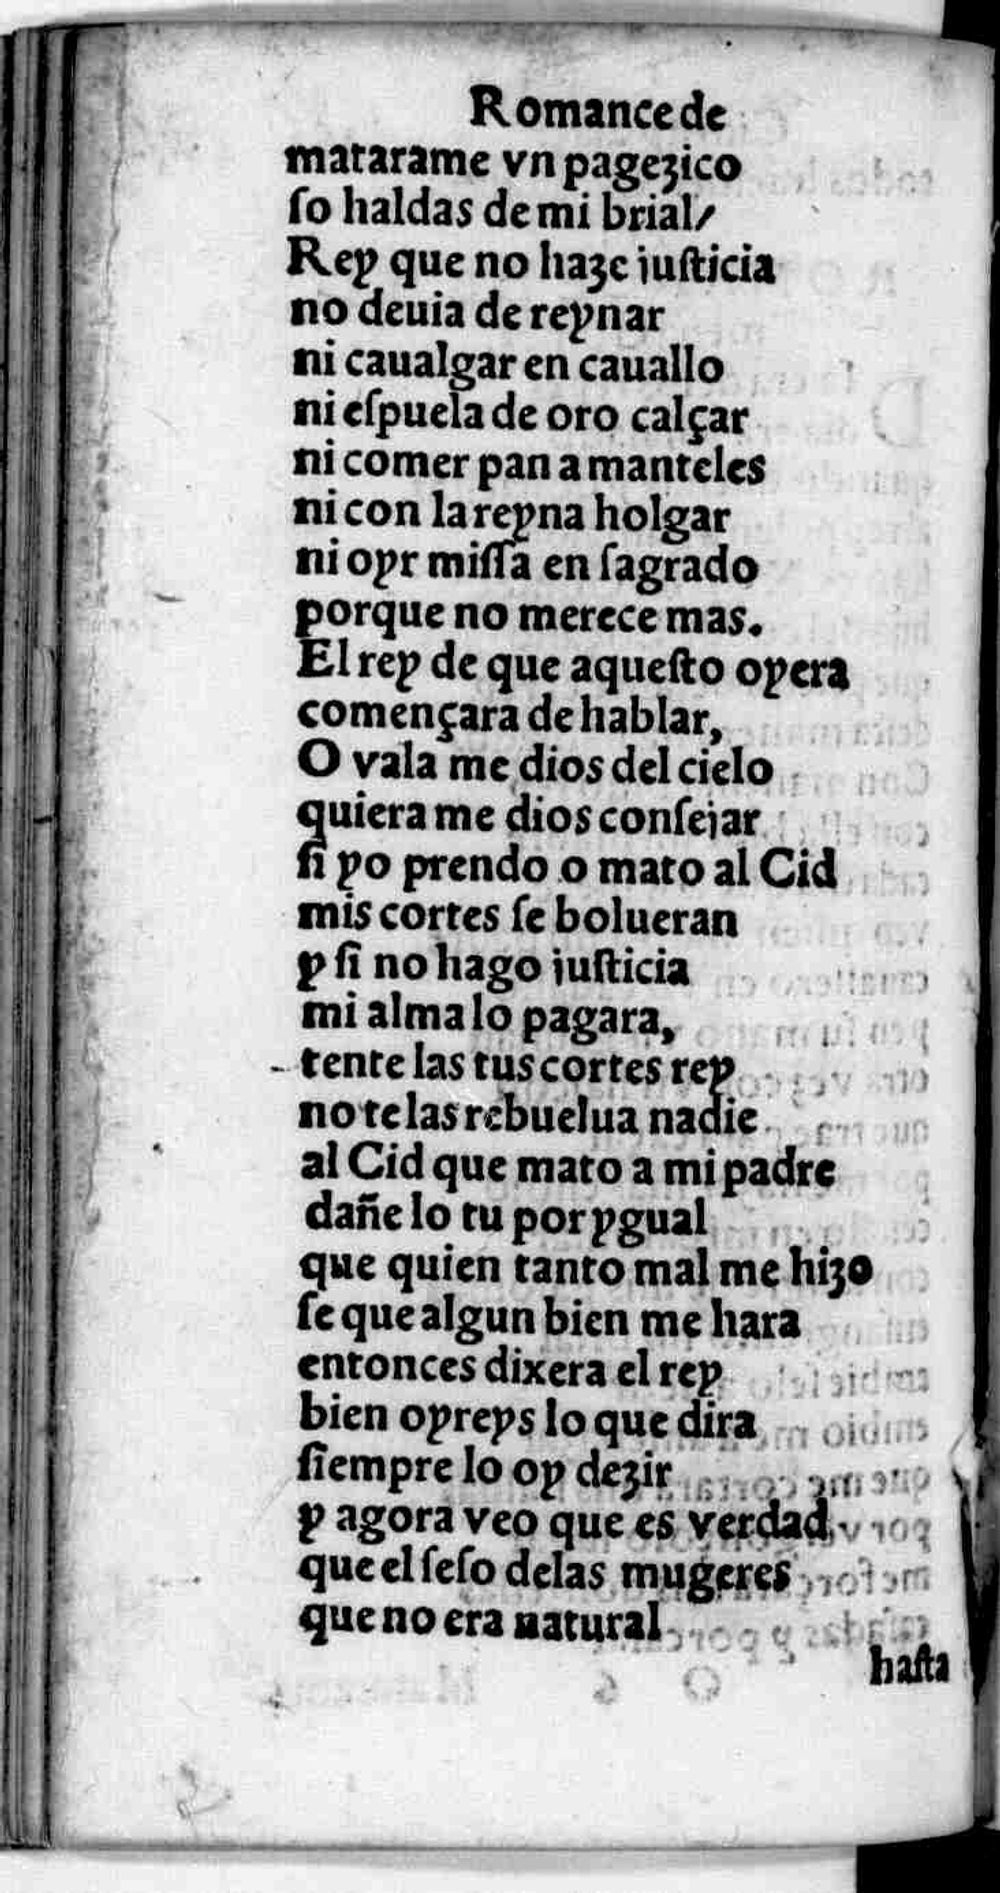 Romance de
matarame vn pagezico
ſo haldas de mi brial/
Rey que no haze iuſticia
no deuia de reynar
ni caualgar en cauallo
ni eſpuela de oro calçar
ni comer pan a manteles
ni con la reyna holgar
ni oyr miſſa en ſagrado
porque no merece mas.
El rey de que aqueſto oyera
començara de hablar,
O vala me dios del cielo
quiera me dios conſejar
ſi yo prendo o mato al Cid
mis cortes ſe bolueran
y ſi no hago iuſticia
mi alma lo pagara,
tente las tus cortes rey
no te las rebuelua nadie
al Cid que mato a mi padre
dañe lo tu por ygual
que quien tanto mal me hizo
ſe que algun bien me hara
entonces dixera el rey
bien oyreys lo que dira
ſiempre lo oy dezir
y agora veo que es verdad
que el ſeſo delas mugeres
que no era natural
haſta